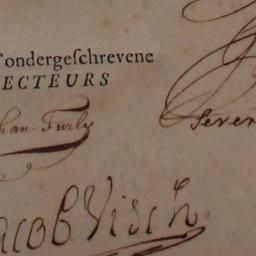 'ondergeſchrevene
ECTEURS
han Furly
Severi
acob Visch